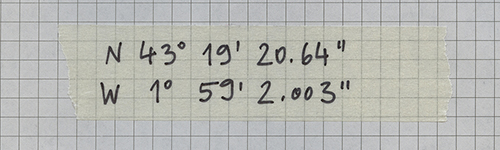 N 43° 19' 20.64"
W 1° 59' 2.003"